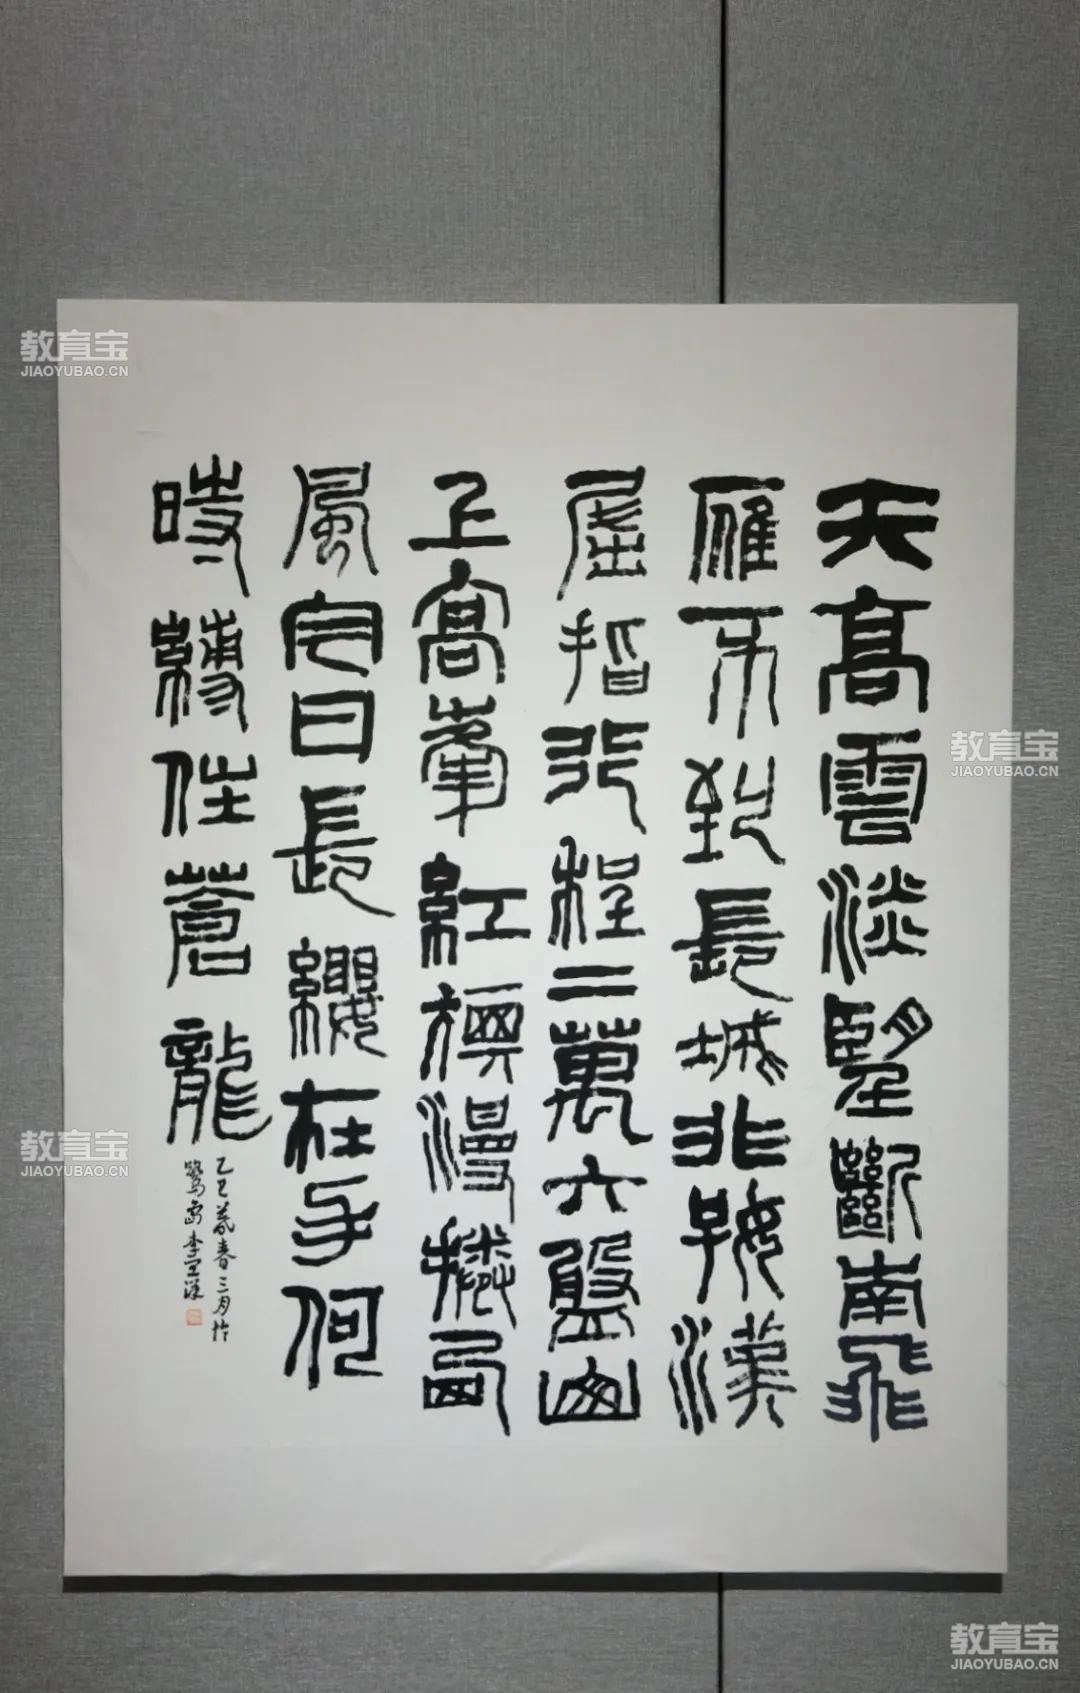 教育宝
JIAOYUBAO.CN
天高雲淡望斷南飛
雁不到長城非好漢
屈指行程二萬六盤山
上高峯紅旗漫捲西
風今日長纓在手何
時縛住蒼龍
乙巳暮春三月於
鷺島李
教育宝
JIAOYUBAO.CN
教育宝
JIAOYUBAO.CN
教育宝
JIAOYUBAO.CN